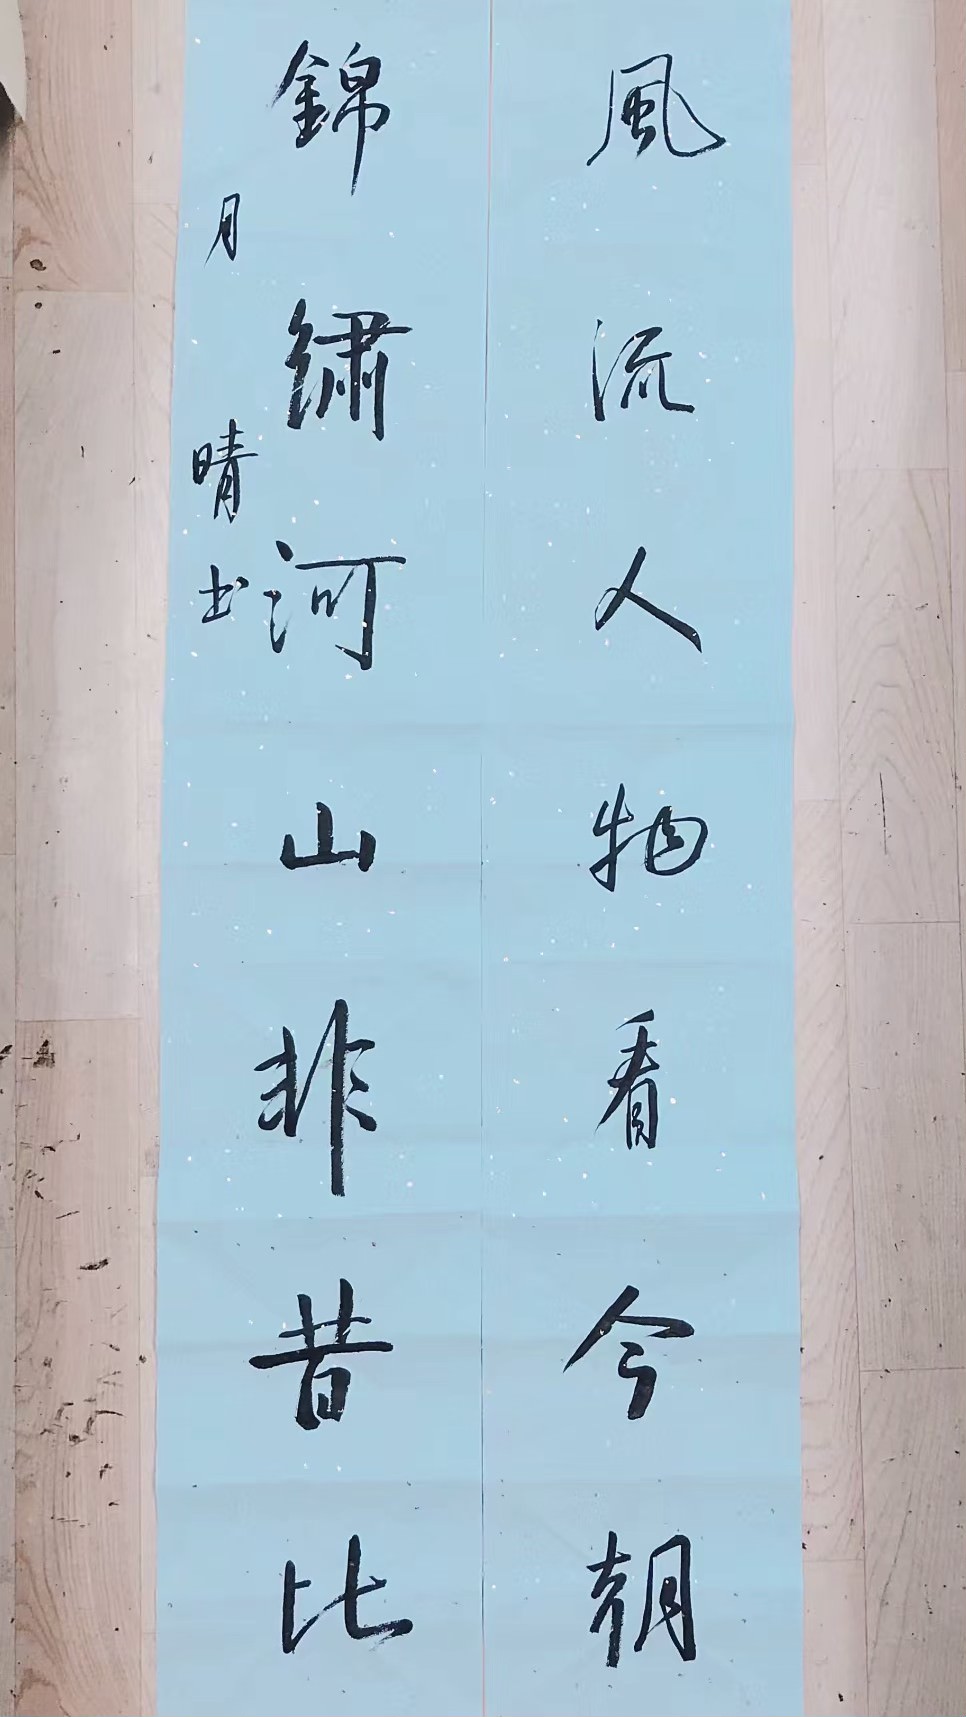 風流人物看今朝
錦繍河山非昔比
月晴书